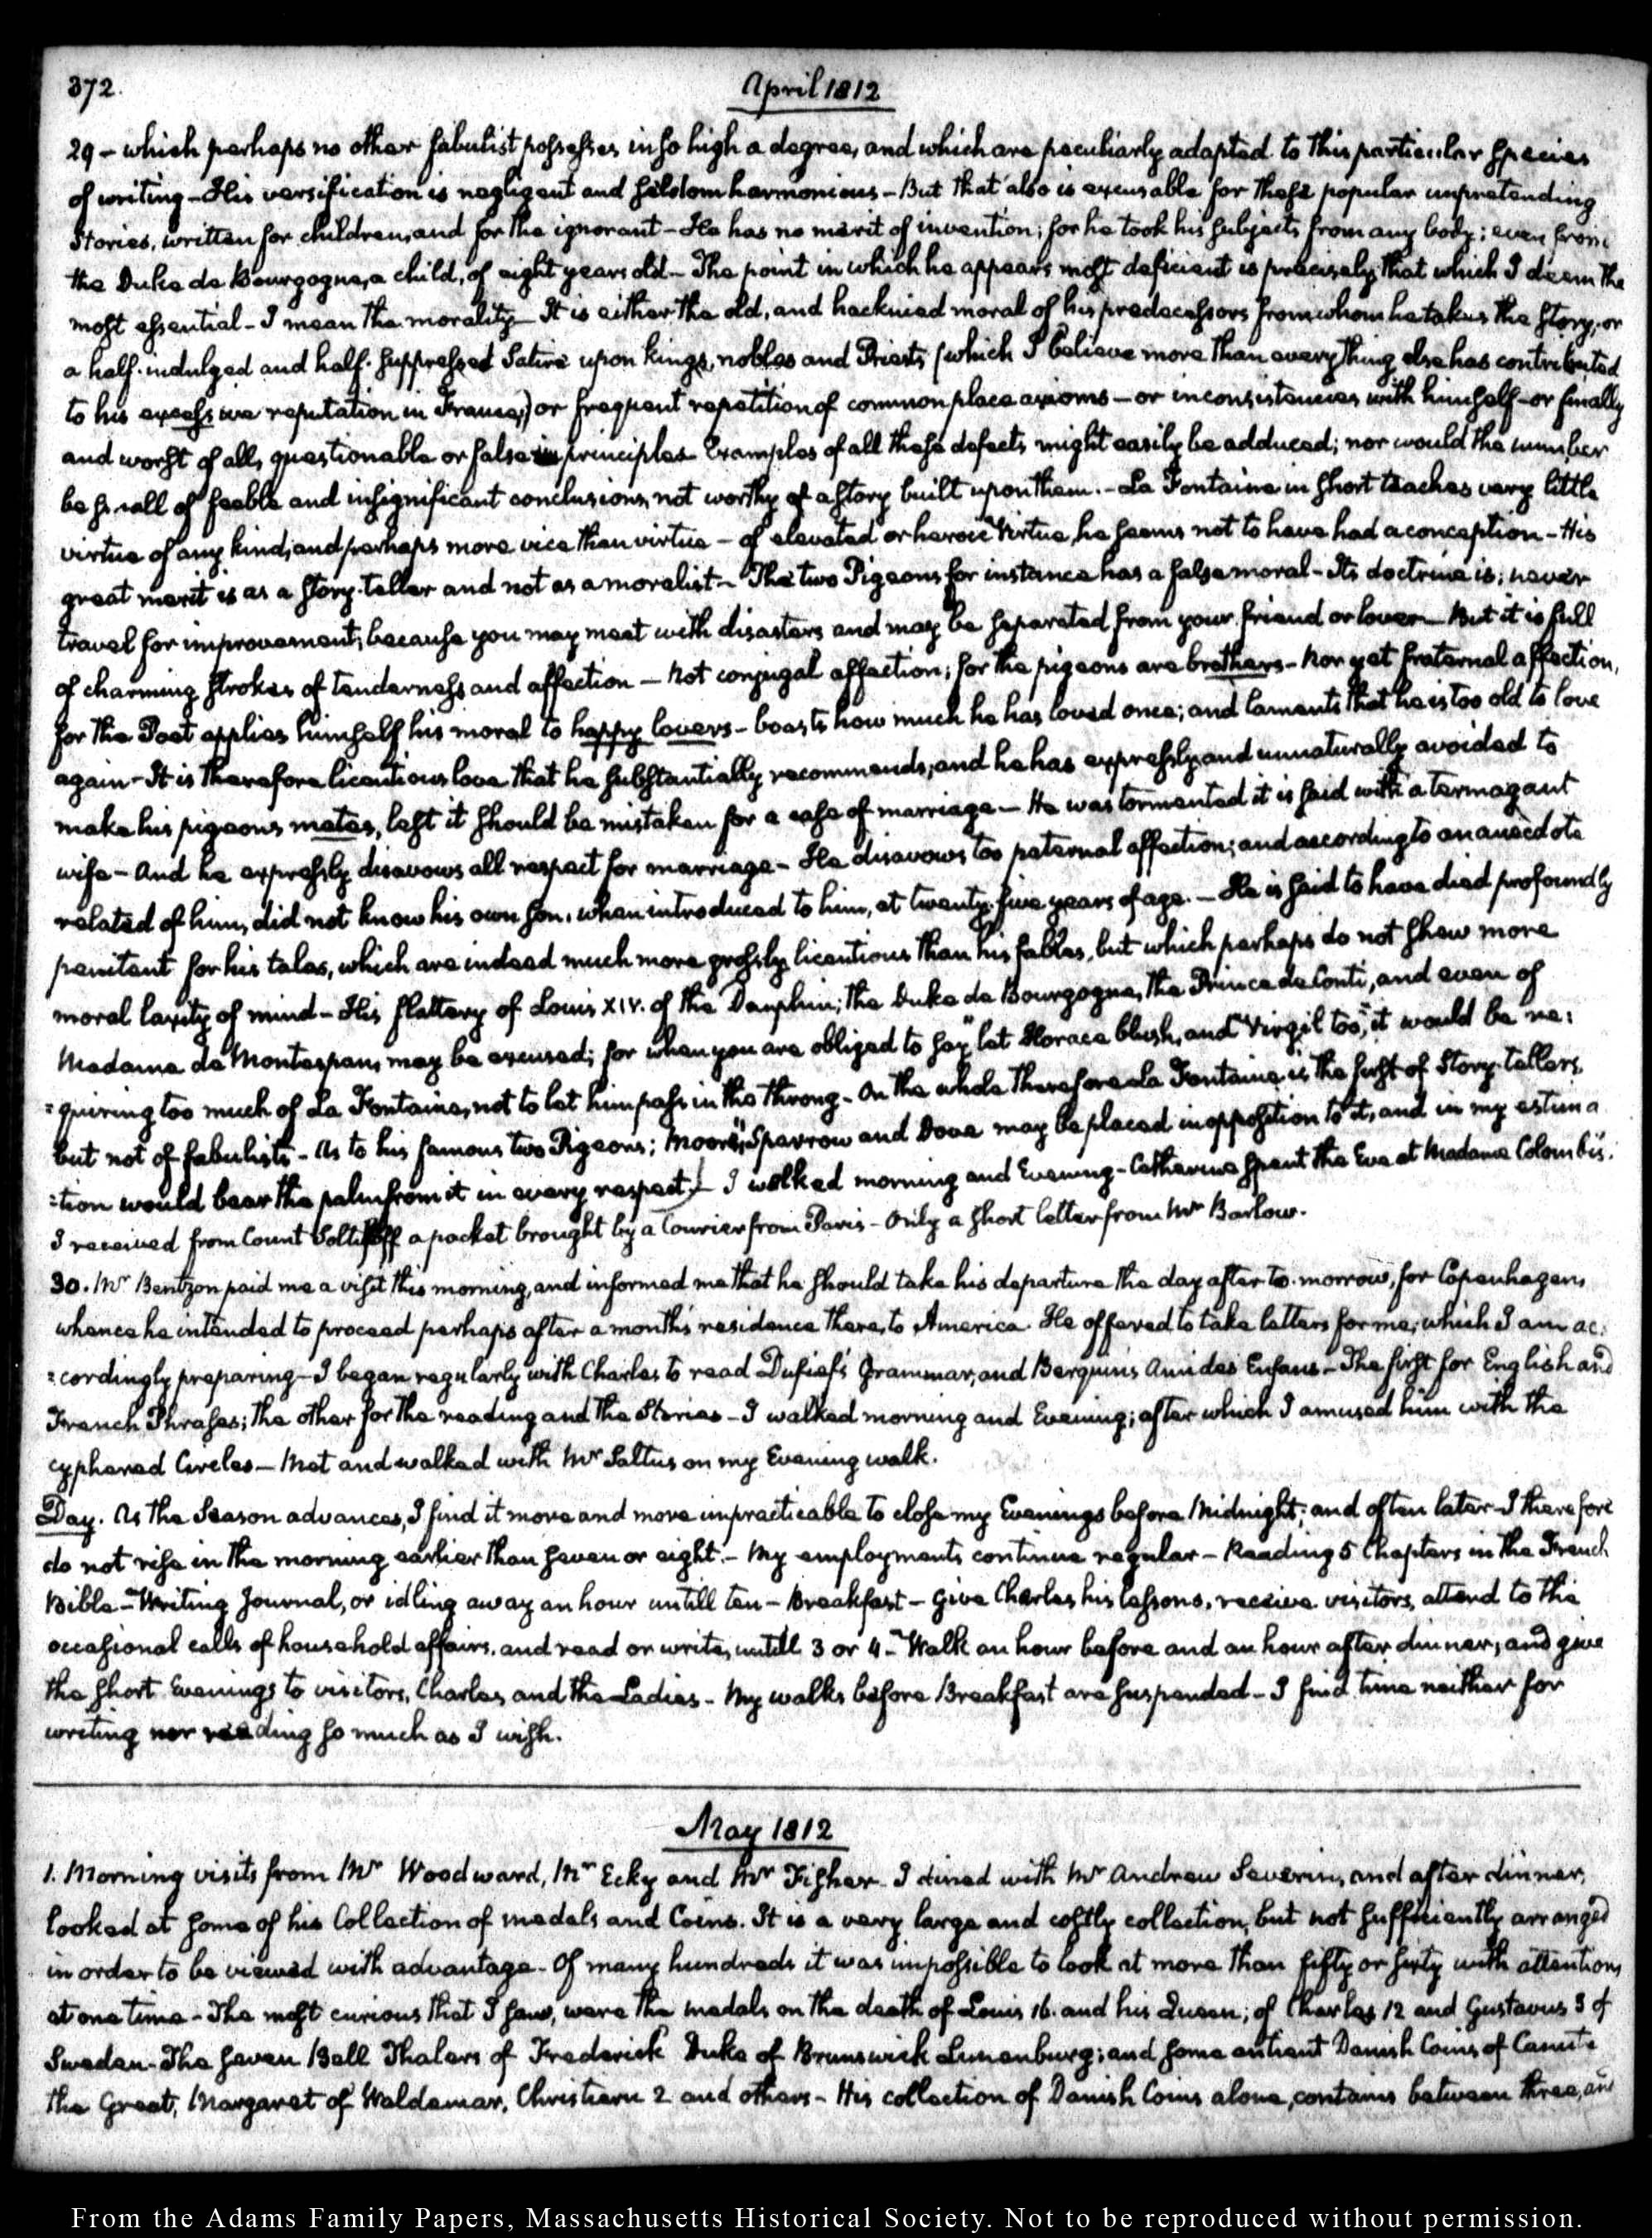 372.
April 1812
29 - which perhaps no other fabulist possesses in so high a degree, and which are peculiarly adapted to this particular species
of writing - His versification is negligent and seldom harmonious - But that also is excusable for these popular unpretending
Stories, written for children, and for the ignorant - He has no merit of invention; for he took his subjects from any body; even from
the Duke de Bourgogne, a child, of eight years old - The point in which he appears most deficient is precisely that which I deem the
most essential - I mean the morality - It is either the old, and hackneid moral of his predecessors from whom he takes the story, or
a half-indulged and half-suppressed Satire upon kings, nobles and Priests (which I believe more than every thing else has contributed
to his excessive reputation in France,) or frequent repetition of common place axioms - or inconsistencies with himself - or finally
and worst of all, questionable or false principles Examples of all these defects might easily be adduced; nor would the number
be small of feeble and insignificant conclusions, not worthy of a story built upon them. - La Fontaine in short teaches very little
virtue of any kind, and perhaps more vice than virtue - of elevated or heroic Virtue, he seems not to have had a conception - His
great merit is as a story-teller and not as a moralist - The two Pigeons for instance has a false moral - Its doctrine is; never
travel for improvement; because you may meet with disasters and may be separated from your friend or lover - But it is full
of charming strokes of tenderness and affection - Not conjugal affection; for the pigeons are brothers - Nor yet fraternal affection,
for the Poet applies himself his moral to happy lovers - boasts how much he has loved once; and laments that he is too old to love
again - It is therefore licentious love that he substantially recommends; and he has expressly and unnaturally avoided to
make his pigeons mates, lest it should be mistaken for a case of marriage - He was tormented it is said with a termagant
wife - And he expressly disavows all respect for marriage - He disavows too paternal affection; and according to an anecdote
related of him, did not know his own son, when introduced to him, at twenty-five years of age. - He is said to have died profoundly
penitent for his tales, which are indeed much more grossly licentious than his fables, but which perhaps do not shew more
moral laxity of mind - His flattery of Louis XIV. of the Dauphin; the Duke de Bourgogne, the Prince de Conti, and even of
Madame de Montespan, may be excused; for when you are obliged to say "let Horace blush, and Virgil too," it would be re:
=quiring too much of La Fontaine, not to let him pass in the throng - On the whole therefore La Fontaine is the first of Story-tellers,
but not of fabulists - As to his famous two Pigeons; Moore's Sparrow and Dove may be placed in opposition to it, and in my estima
=tion would bear the palm from it in every respect.) - I walked morning and Evening - Catherine spent the Eve at Madame Colombi's.
I received from Count Soltikoff a packet brought by a Courier from Paris - Only a short letter from Mr Barlow.
30. Mr Bentzon paid me a visit this morning, and informed me that he should take his departure the day after to-morrow, for Copenhagen,
whence he intended to proceed perhaps after a month's residence there, to America. He offered to take letters for me; which I am ac:
=cordingly preparing - I began regularly with Charles to read Dufief's Grammar, and Berquin's Ami des Enfans - The first for English and
French Phrases; the other for the reading and the Stories - I walked morning and Evening; after which I amused him with the
cyphered Circles - Met and walked with Mr Saltus on my Evening walk.
Day. As the Season advances, I find it more and more impracticable to close my Evenings before Midnight; and often later - I therefore
do not rise in the morning earlier than seven or eight. - My employments continue regular - Reading 5 Chapters in the French
Bible - Writing Journal, or idling away an hour untill ten - Breakfast - Give Charles his lessons, receive visitors, attend to the
occasional calls of household affairs, and read or write, untill 3 or 4 - Walk an hour before and an hour after dinner; and give
the short Evenings to visitors, Charles and the Ladies - My walks before Breakfast are suspended - I find time neither for
writing nor reading so much as I wish.
May 1812
1. Morning visits from Mr Woodward, Mr Ecky and Mr Fisher. I dined with Mr Andrew Severin, and after dinner,
looked at some of his Collection of medals and Coins. It is a very large and costly collection, but not sufficiently arranged
in order to be viewed with advantage - Of many hundreds it was impossible to look at more than fifty or sixty with attention,
at one time - The most curious that I saw, were the medals on the death of Louis 16. and his Queen; of Charles 12 and Gustavus 3 of
Sweden - The seven Bell Thalers of Frederick Duke of Brunswick Lunenburg; and some antient Danish Coins of Canute
the Great, Margaret of Waldemar, Christiern 2 and others - His collection of Danish Coins alone, contains between three, and
From the Adams Family Papers, Massachusetts Historical Society. Not to be reproduced without permission.